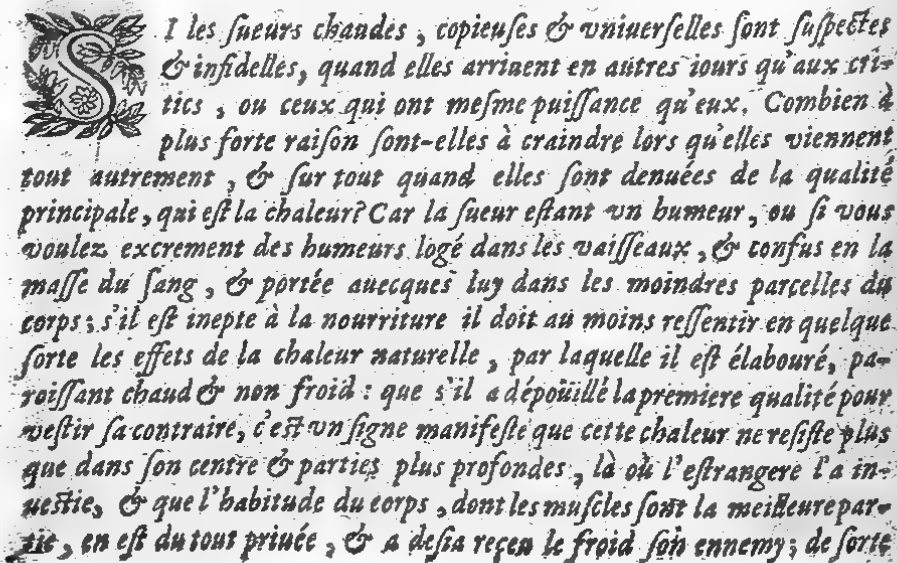 SI les ſueurs chaudes, copieuſes & vniuerſelles ſont ſuſpectes
& infidelles, quand elles arriuent en autres iours qu'aux cri-
tics, ou ceux qui ont meſme puiſſance qu'eux. Combien à
plus forte raiſon ſont-elles à craindre lors qu'elles viennent
tout autrement, & ſur tout quand elles ſont denuées de la qualité
principale, qui eſt la chaleur? Car la ſueur eſtant vn humeur, ou ſi vous
voulez excrement des humeurs logé dans les vaiſſeaux, & confus en la
maſſe du ſang, & portée auecques luy dans les moindres parcelles du
corps; s'il eſt inepte à la nourriture il doit au moins reſſentir en quelque
ſorte les effets de la chaleur naturelle, par laquelle il eſt élabouré, pa-
roiſſant chaud & non froid: que s'il a dépoüillé la premiere qualité pour
veſtir ſa contraire, c'eſt vn ſigne manifeſte que cette chaleur ne reſiſte plus
que dans ſon centre & parties plus profondes, là où l'eſtrangere l'a in-
ueſtie, & que l'habitude du corps, dont les muſcles ſont la meilleure par-
tie, en eſt du tout priuée, & a deſia receu le froid ſon ennemy; de ſorte